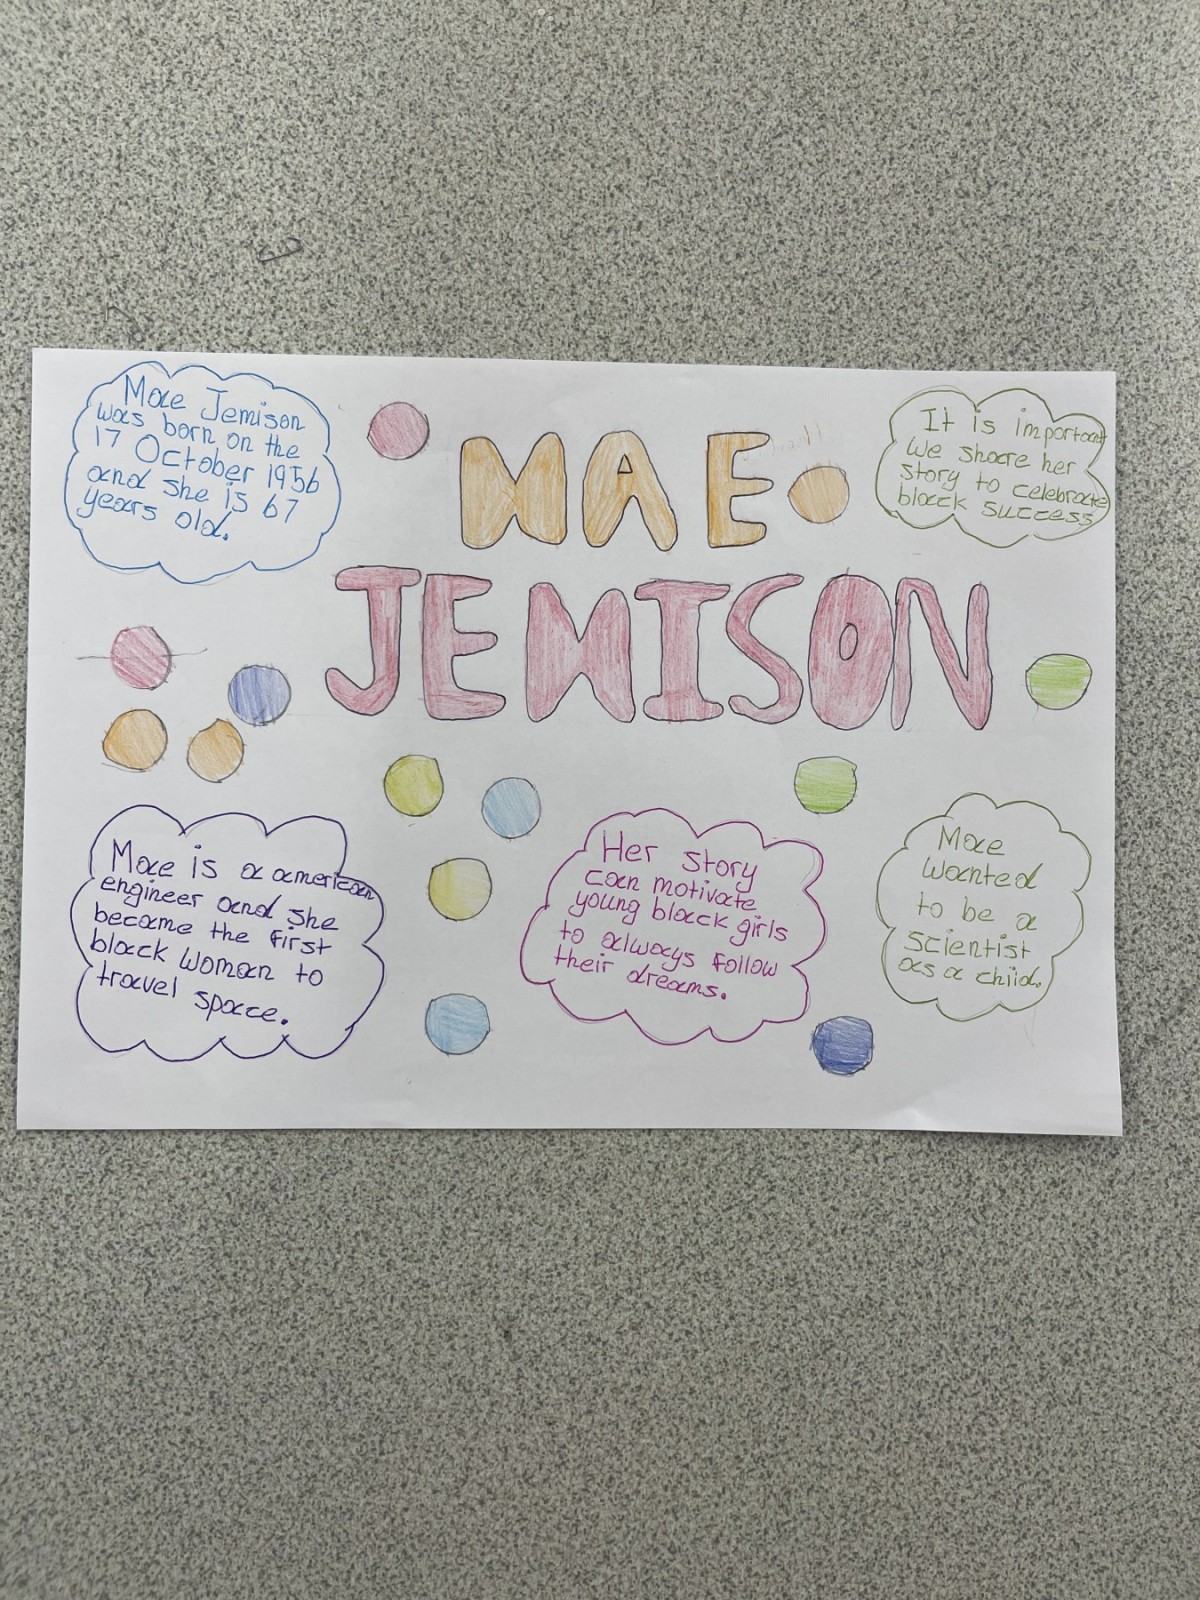 Mae Jemison
was born on the
17 October 1956
and she is 67
years old.
MAE
JEMISON
It is important
we share her
story to celebrate
black success
Mae is a american
engineer and she
became the first
black woman to
travel space.
Her story
can motivate
young black girls
to always follow
their dreams.
Mae
wanted
to be a
scientist
as a child.